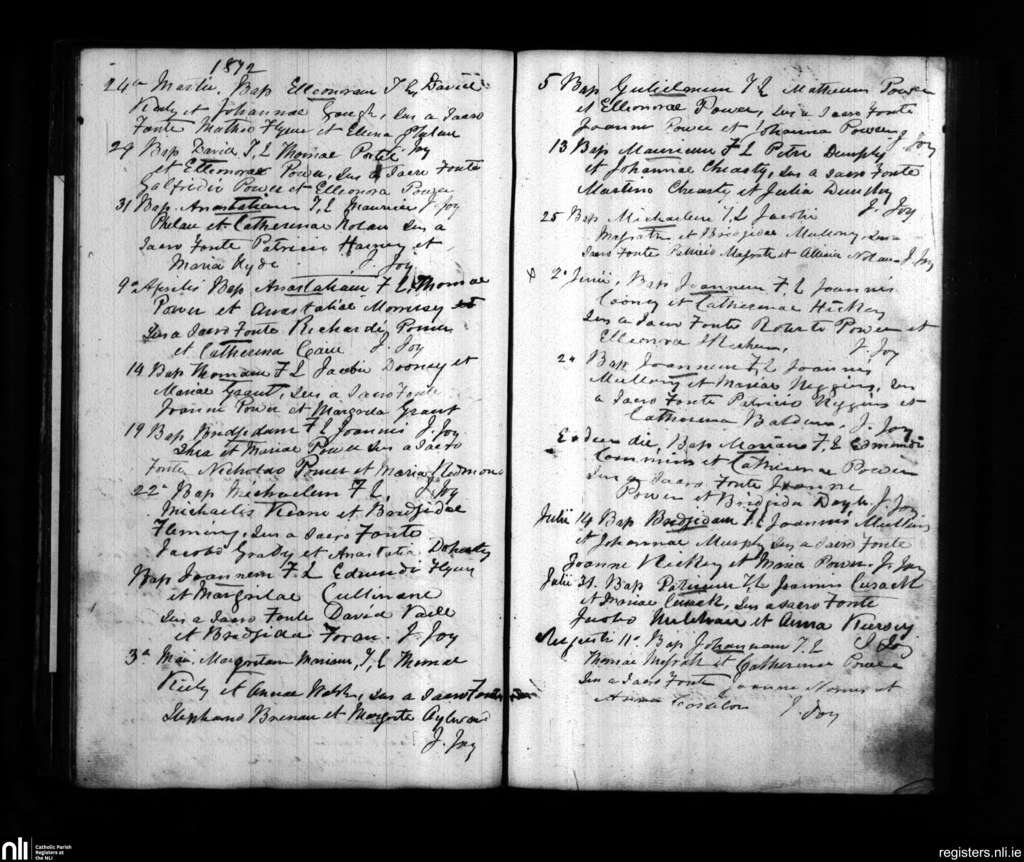 1872
24a Martii, Bap Elleonoram F L David
Kiely et Johannae Gough, Sus a Sacro
Fonte Matheo Flynn et Elena Phelan
29 Bap David F, L Thomae Power J. Joy
et Ellenorae Power, Sus a Sacro Fonte
Galfrido Power et Ellenora Power
31 Bap Anastatiam F, L Mauricii J. Joy
Phelan et Catherinae Nolan Sus a
Sacro Fonte Patricio Harney et
Maria Hyde J. Joy
9a Aprilis Bap Anastatiam F L Thomae
Power et Anastatiae Morrissy
Sus a Sacro Fonte Richardi Power
et Catherina J. Joy
14 Bap Thomam F L Jacobi Dooney et
Mariae Grant, Sus a Sacro Fonte
Joanne Power et Margarita Grant
19 Bap, Bridgidam F L Joannis J. Joy
Shea et Mariae Power Sus a Sacro
Fonte Nicholao Power et Maria Redmond
22a Bap Michaelem F L, J. Joy
Michaelis Keane et Bridgidae
Fleming, Sus a Sacro Fonte
Jacobo Grady et Anastatia Doherty
Bap Joannem F. L Edmundi Flynn
et Margritae Cullinane
Sus a Sacro Fonte David
et Bridgida Foran. J. Joy
3a Maii. Margritam Mariam, F, L Thomae
Kiely et Annae Welsh, Sus a Sacro Fonte
Stephano Brenan et Margrita Aylward
J. Joy
5 Bap Gulielmum F L Matheus Power
et Ellenorae Power, Sus a Sacro Fonte
Joanne Power et Johanna Power J. Joy
13 Bap Mauricum F L Petri Dunphy
et Johannae Cheasty, Sus a Sacro Fonte
Martino Cheasty et Julia Dunphy
J. Joy
25 Bap Michaelem F L Jacobi
Magrath et Bridgidae Mullony, Sus a
Sacro Fonte Patricio Magrath et Allicia Nolan J. Joy
2a Junii, Bap Joannem F L Joannis
Cooney et Catherinae Hickey
Sus a Sacro Fonte Roberto Power et
Elleonora J. Joy
2a Bap Joannem F L Joannis
Mullony et Mariae Higgins, Sus
a Sacro Fonte Patricio Higgins et
Catherina J. Joy
Eodem die, Bap Mariam F, L Edmundi
Commins et Catherinae Power
Sus a Sacro Fonte Joanne
Power et Bridgida Doyle J. Joy
Julii 14 Bap Bridgidam F L Joannis Mullins
et Johannae Murphy Sus a Sacro Fonte
Joanne Hickey et Maria Power. J. Joy
Julii 31. Bap Patricum F L Joannis Cusack
et Mariae Cusack, Sus a Sacro Fonte
et Anna Kiersey
Augusti 11a. Bap Johannam F. L J. Joy
Thomae Magrath et Catherinae Power
Sus a Sacro Fonte Joanne et
Anna J. Joy
nli Catholic Parish
Registers at
the NLI
registers.nli.ie